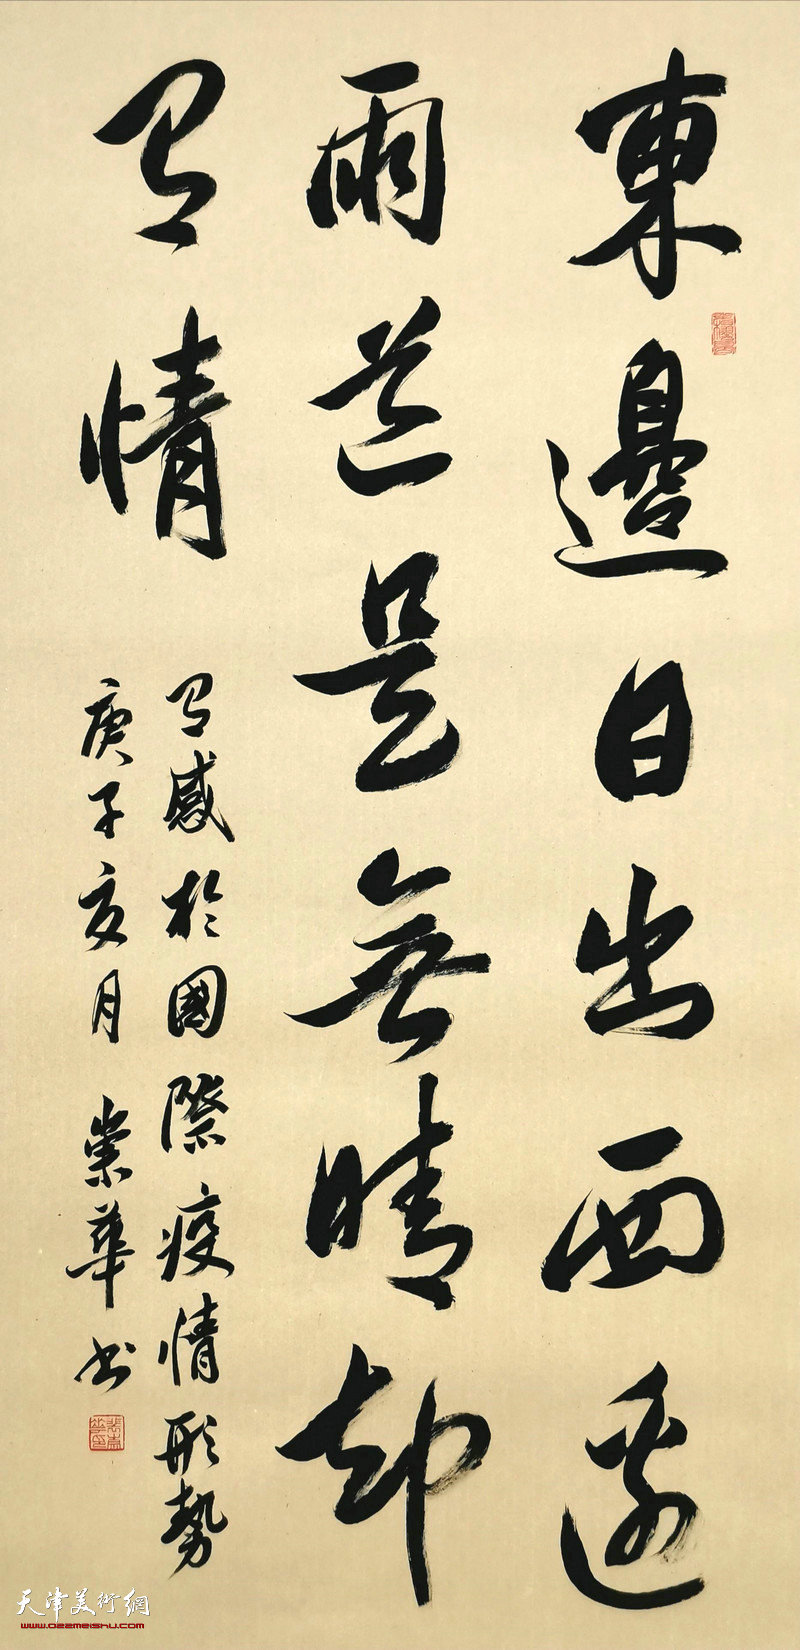 東邊日出西邊
雨道是無晴却
有情
有感於國際疫情形勢
庚子亥月 崇華书
天津美術網
www.022meishu.com